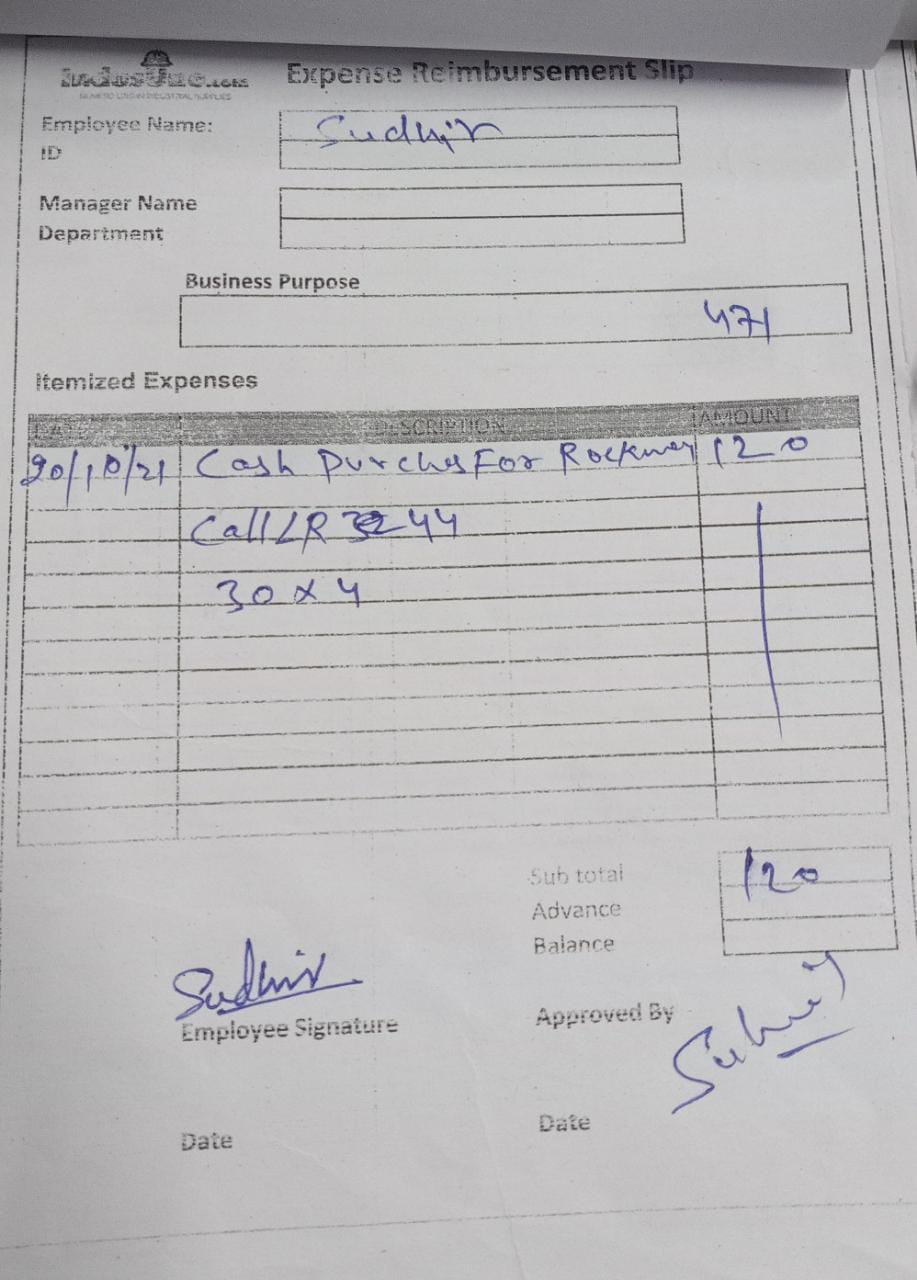 IndusUno.com Expense Reimbursement Slip
NUMERO UNO IN INDUSTRIAL SUPPLIES
Employee Name: Sudhir
ID
Manager Name
Department
Business Purpose
471
Itemized Expenses
DATE DESCRIPTION AMOUNT
20/10/21 Cash Purches For 120
Call LR 44
30 x 4
Sub total 120
Advance
Balance
Sudhir
Employee Signature
Approved By
Date
Date